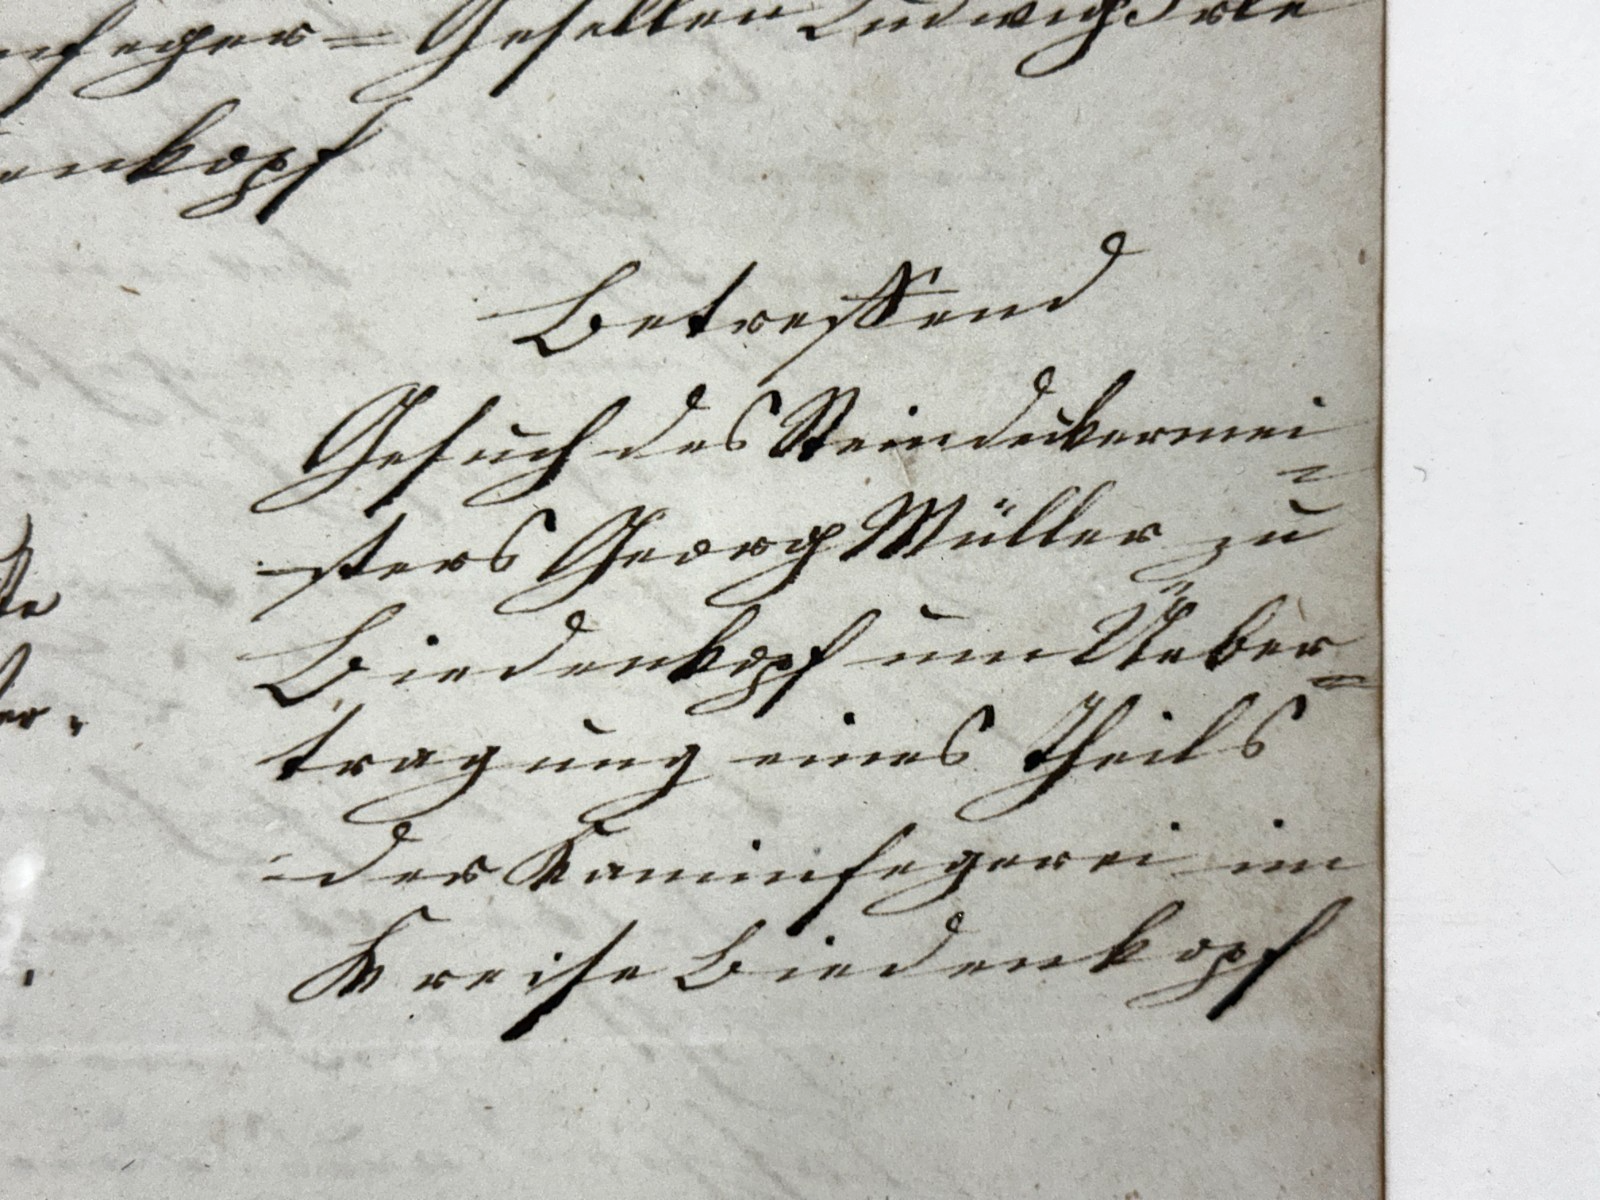 nfeger-Gesellen Ludwig Irle
enkopf
Betreffend
Gesuch des Steindeckermei
sters Georg Müller zu
Biedenkopf um Ueber-
tragung eines Theils
der Kaminfegerei im
Kreise Biedenkopf